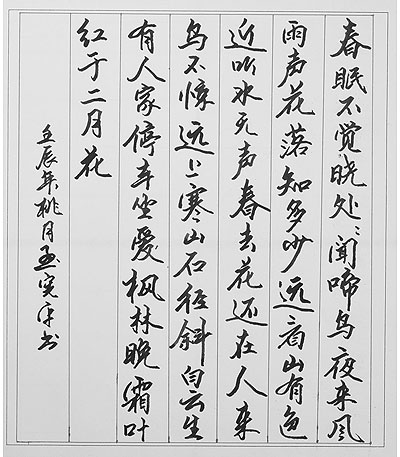 春眠不觉晓处々闻啼鸟夜来风
雨声花落知多少远看山有色
近听水无声春去花还在人来
鸟不惊远上寒山石径斜白云生
有人家停车坐爱枫林晚霜叶
红于二月花
壬辰年桃月宪平书